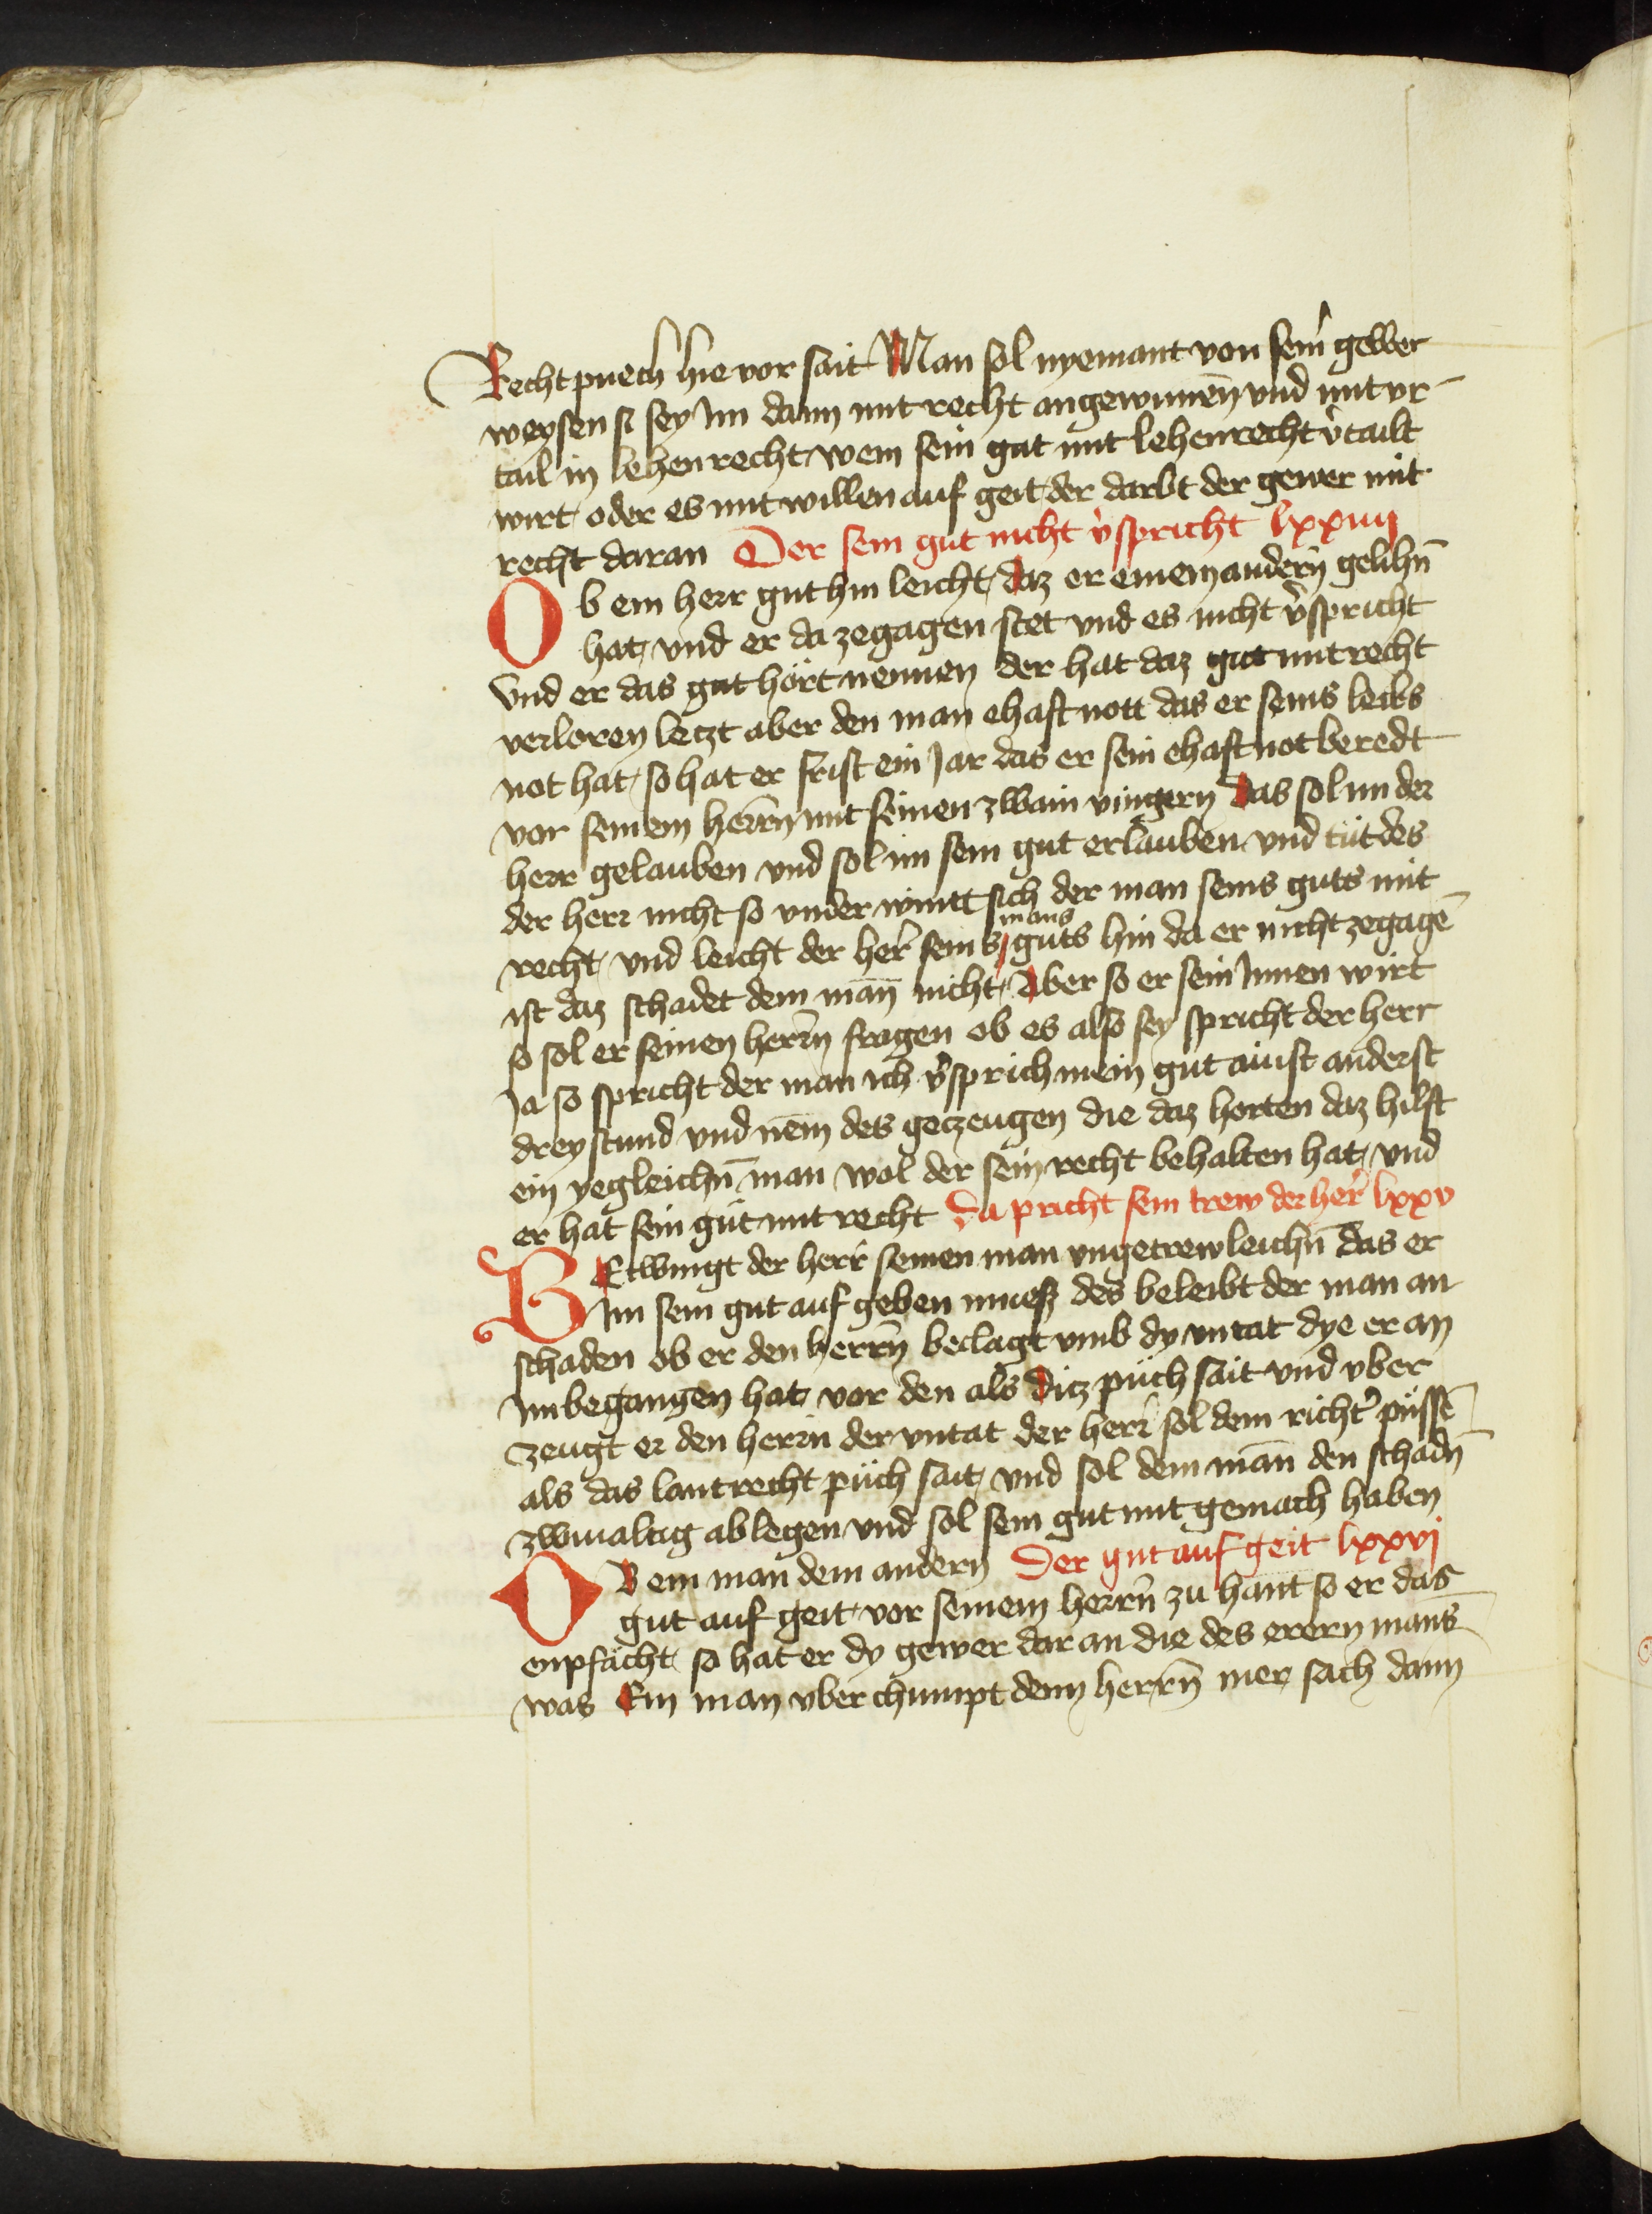 Recht puech hie vor sait Man sol nyemant von seinr gewer
weysen si sey im dann mit recht angewunnen̄ vnd mit vr-
tail in lehenrecht wem sein gut mit lehenrecht v̾tailt
wirt oder es mit willen auf geit der darbt der gewer mit
recht daran Der sein gut nicht v̾spricht lxxiiij
Ob ein herr gut hin leicht daz er einem andern̄ gelihn̄
hat vnd er da zegagen stet vnd es nicht v̾spricht
vnd er das gut hört nennen der hat daz gut mit recht
verloren letzt aber den man ehaft nott das er seins leibs
not hat so hat er frist ein Jar das er sein ehaft not beredt
vor seinem herrn̄ mit seinen zwain vingern Das sol im der
herr gelauben vnd sol im sein gut erlauben vnd tüt des
der herr nicht so vnder wintt sich der man seins guts mit
recht vnd leicht der her̾ seins mans guts hin da er nicht zegagē
ist daz schadet dem man̄ nicht Aber so er sein Innen wirt
so sol er seinen herrn̄ fragen ob es also sey spricht der herr
Ja so spricht der man ich v̾sprich mein gut ainst anderst
drey stund vnd nem̄ des getzeugen die daz horten daz hilft
ein yegleichn̄ man wol der sein recht behalten hat vnd
er hat sein güt mit recht Da pricht sein trew der her̾ lxxv
BEtwingt der herr̾ seinen man vngetrewleichn̄ das er
Im sein gut auf geben muesz des beleibt der man an
schaden ob er den herrn̄ beclagt vmb dy vntat dye er an
Im begangen hat vor den als ditz püch sait vnd vber
zeugt er den herrn der vntat der herr̾ sol dem richt̾ püssē
als das lantrecht püch sait vnd sol dem man̄ den schadn̄
zwiualtig ablegen vnd sol sein gut mit gemach haben
OB ein man dem andern Der gut auf geit lxxvj
gut auf geit vor seinem herrn̄ zu hant so er das
enpfächt so hat er dy gewer dar an die des erern mans
was Ein man vber chumpt denn herrn̄ mer sach dann